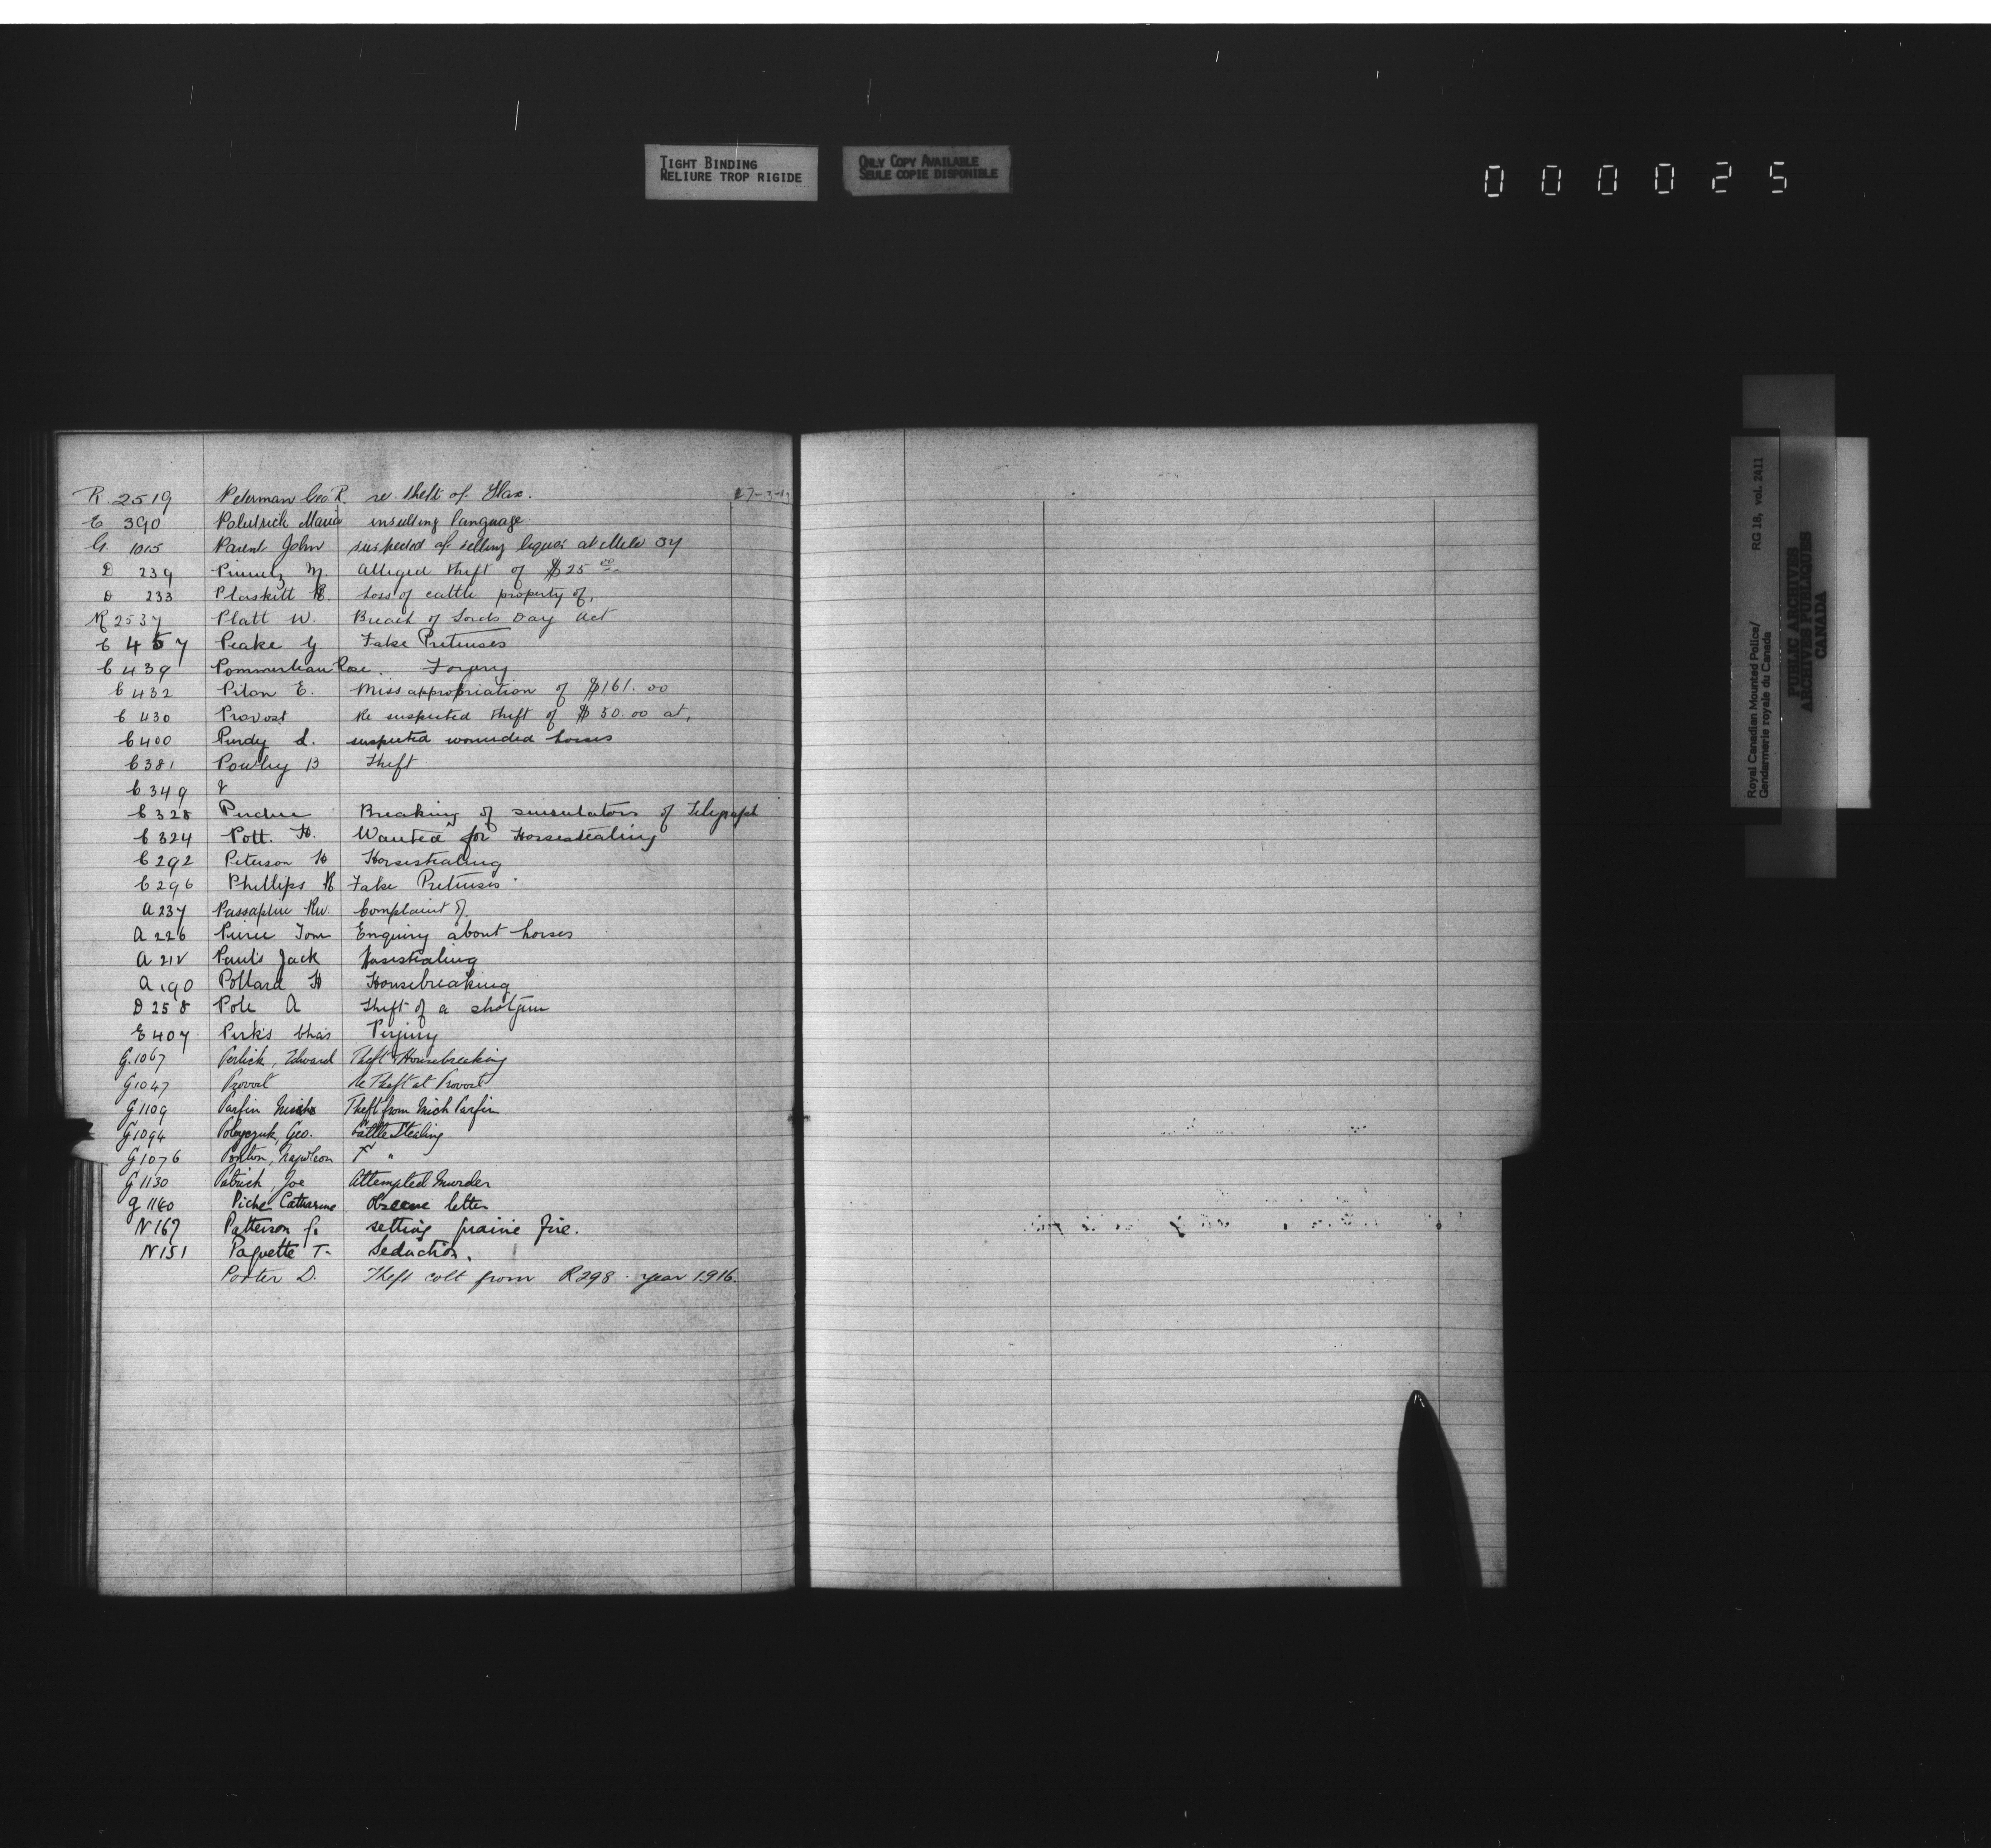 TIGHT BINDING
RELIURE TROP RIGIDE
ONLY COPY AVAILABLE
SEULE COPIE DISPONIBLE
000025
R 2519 Peterman Geo R re theft of Flax. 27-3-19
E 390 Maria insulting language
G. 1015 Parent John suspected of selling liquor at Mile 34
D 239 M. Alleged theft of $25 00
D 233 Plaskett H. Loss of cattle property of,
R 2537 Platt W. Breach of Lords Day Act
C 457 Peake G False Pretenses
C 439 Pommerleau Rose Forgery
C 432 Pilon E. Missappropriation of $161.00
C 430 Provost Re suspected theft of $50.00 at,
C 400 Purdy L. suspected wounded horses
C 381 Powley B Theft
C. 349 &
C 328 Perdue Breaking of insulators of Telegraph
C 324 Pott. H. Wanted for Horsestealing
C 292 Peterson H Horsestealing
C 296 Phillips H False Pretenses
A 237 Complaint of
A 226 Pierce Tom Enquiry about horses
A 212 Paul's Jack Horsestealing
A 190 Pollard H Housebreaking
D 258 Pole A Theft of a shotgun
E 407 Perks Chas Perjury
G. 1067 Perlick, Edward Theft & Housebreaking
G 1047 Provost Re Theft at Provost
G 1109 Parfin Mich Theft from Mich Parfin
G 1094 Geo. Cattle Stealing
G 1076 Napoleon " "
G 1130 Patrick, Joe Attempted Murder
G 1160 Piche Catharine Obscene letter
N 167 Patterson J. setting prairie fire.
N 151 Paquette T- Seduction.
Porter D. Theft colt from R298. year 1916.
Royal Canadian Mounted Police/ RG 18, vol. 2411
Gendarmerie royale du Canada
PUBLIC ARCHIVES
ARCHIVES PUBLIQUES
CANADA